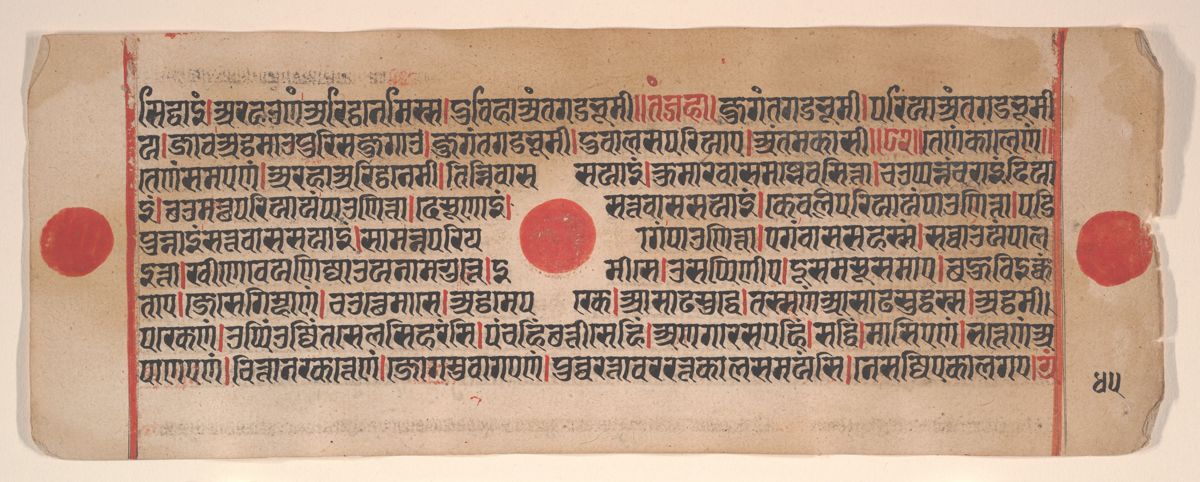 सिद्धाइं।अरहउणंअरिट्ठनेमिस्स।दुविहाअंतगडभूमी॥तंजहा।जुगंतगडभूमी।परियायंतगडभूमी
य।जावअट्ठमाउपुरिसजुगाउ।जुगंतगडभूमी।दुवालसपरियाए।अंतमकासी॥७१॥तेणंकालेणं॥
तेणंसमएणं।अरहाअरिट्ठनेमी।तिन्निवास सयाइं।कुमारवासमज्झेवसित्ता।चउपन्नंचराइंदिया
इं।छउमत्थपरियायंपाउणित्ता।देसूणाइं। सत्तवाससयाइं।केवलिपरियायंपाउणित्ता।पडि
पुन्नाइंसत्तवाससयाइं।सामन्नपरिया गंपाउणित्ता।एगंवाससहस्सं।सव्वाउयंपाल
इत्ता।खीणेवेयणिज्जाउयनामगुत्ते।इ मीसे।उसप्पिणीए।दूसमसूसमाए।बहुविइक्कं
ताए।जेसेगिम्हाणं।चउत्थेमासे।अट्ठमेप क्खे।आसाढसुद्धे।तस्सणंआसाढसुद्धस्स।अट्ठमी।
पक्खेणं।उप्पिंउज्जिंतसेलसिहरंसि।पंचहिंछत्तीसेहिं।अणगारसएहिं।सद्धिं।मासिएणं।भत्तेणंअ
पाणएणं।चित्तानक्खत्तेणं।जोगमुवागएणं।पुव्वरत्तावररत्तकालसमयंसि।नेसज्जिएकालगए।ग्रं
४५